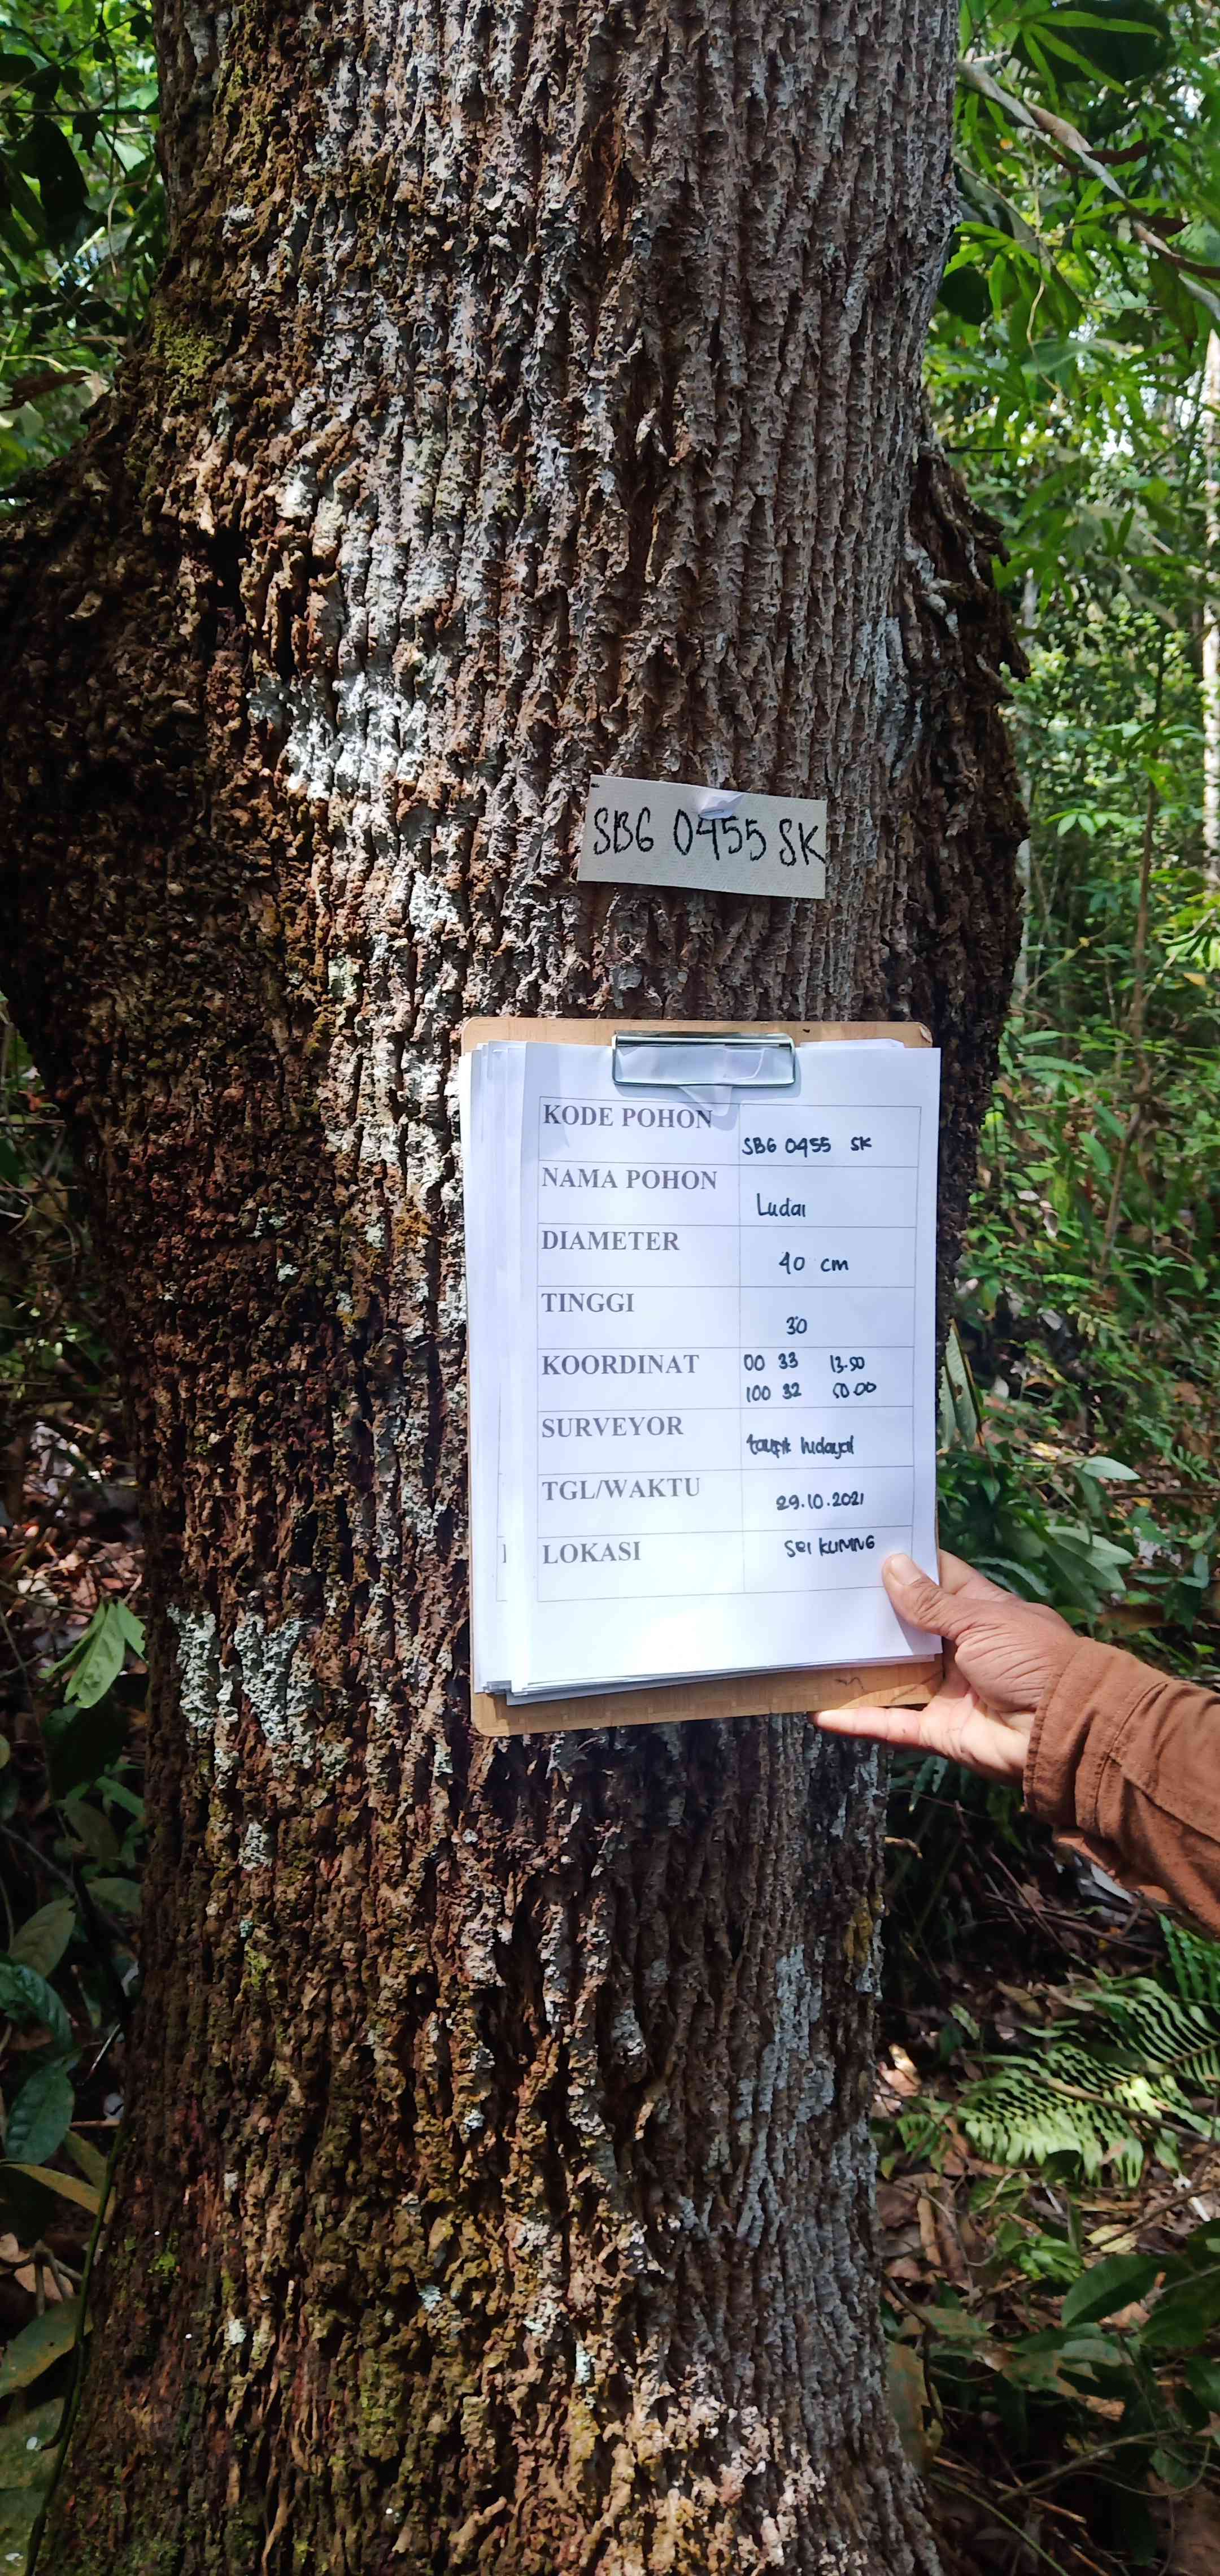 SBG 0455 SK
KODE POHON SBG 0455 SK
NAMA POHON Ludai
DIAMETER 40 cm
TINGGI 30
KOORDINAT 00 33 13.50
100 32 50.00
SURVEYOR taupik hidayat
TGL/WAKTU 29.10.2021
LOKASI Sei